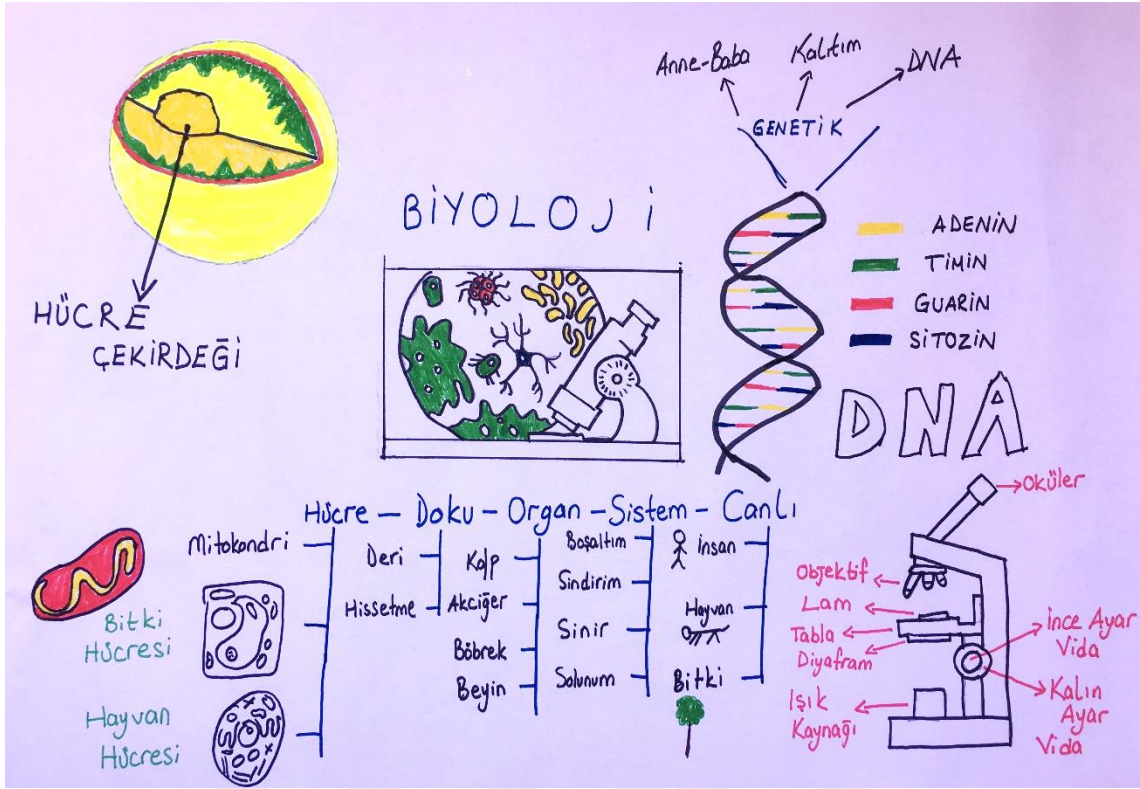 Anne-Baba
Kalıtım
DNA
GENETİK
BİYOLOJİ
HÜCRE
ÇEKİRDEĞİ
ADENİN
TİMİN
GUARİN
SİTOZİN
DNA
Hücre – Doku – Organ – Sistem – Canlı
Mitokondri
Bitki
Hücresi
Hayvan
Hücresi
Deri
Hissetme
Kalp
Akciğer
Böbrek
Beyin
Boşaltım
Sindirim
Sinir
Solunum
İnsan
Hayvan
Bitki
Oküler
Objektif
Lam
Tabla
Diyafram
Işık
Kaynağı
İnce Ayar
Vida
Kalın
Ayar
Vida